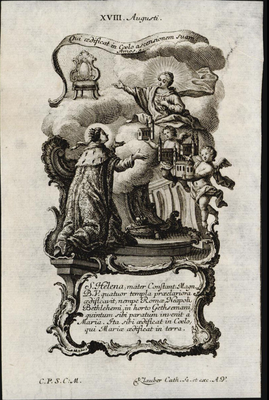 XVIII. Augusti.
Qui ædificat in Cœlo ascensionem suam
Amos. 9.
S. Helena, mater Constant. Magn.
B.V. quatuor templa præclariora
ædificavit, nempe Romæ, Neapoli,
Bethlehemi, in horto Gethsemani,
quintum sibi paratum invenit a
Maria. Ita sibi ædificat in Cœlo,
qui Mariæ ædificat in terra.
C. P. S. C. M.
Klauber Cath. Sc. et exc. A.V.